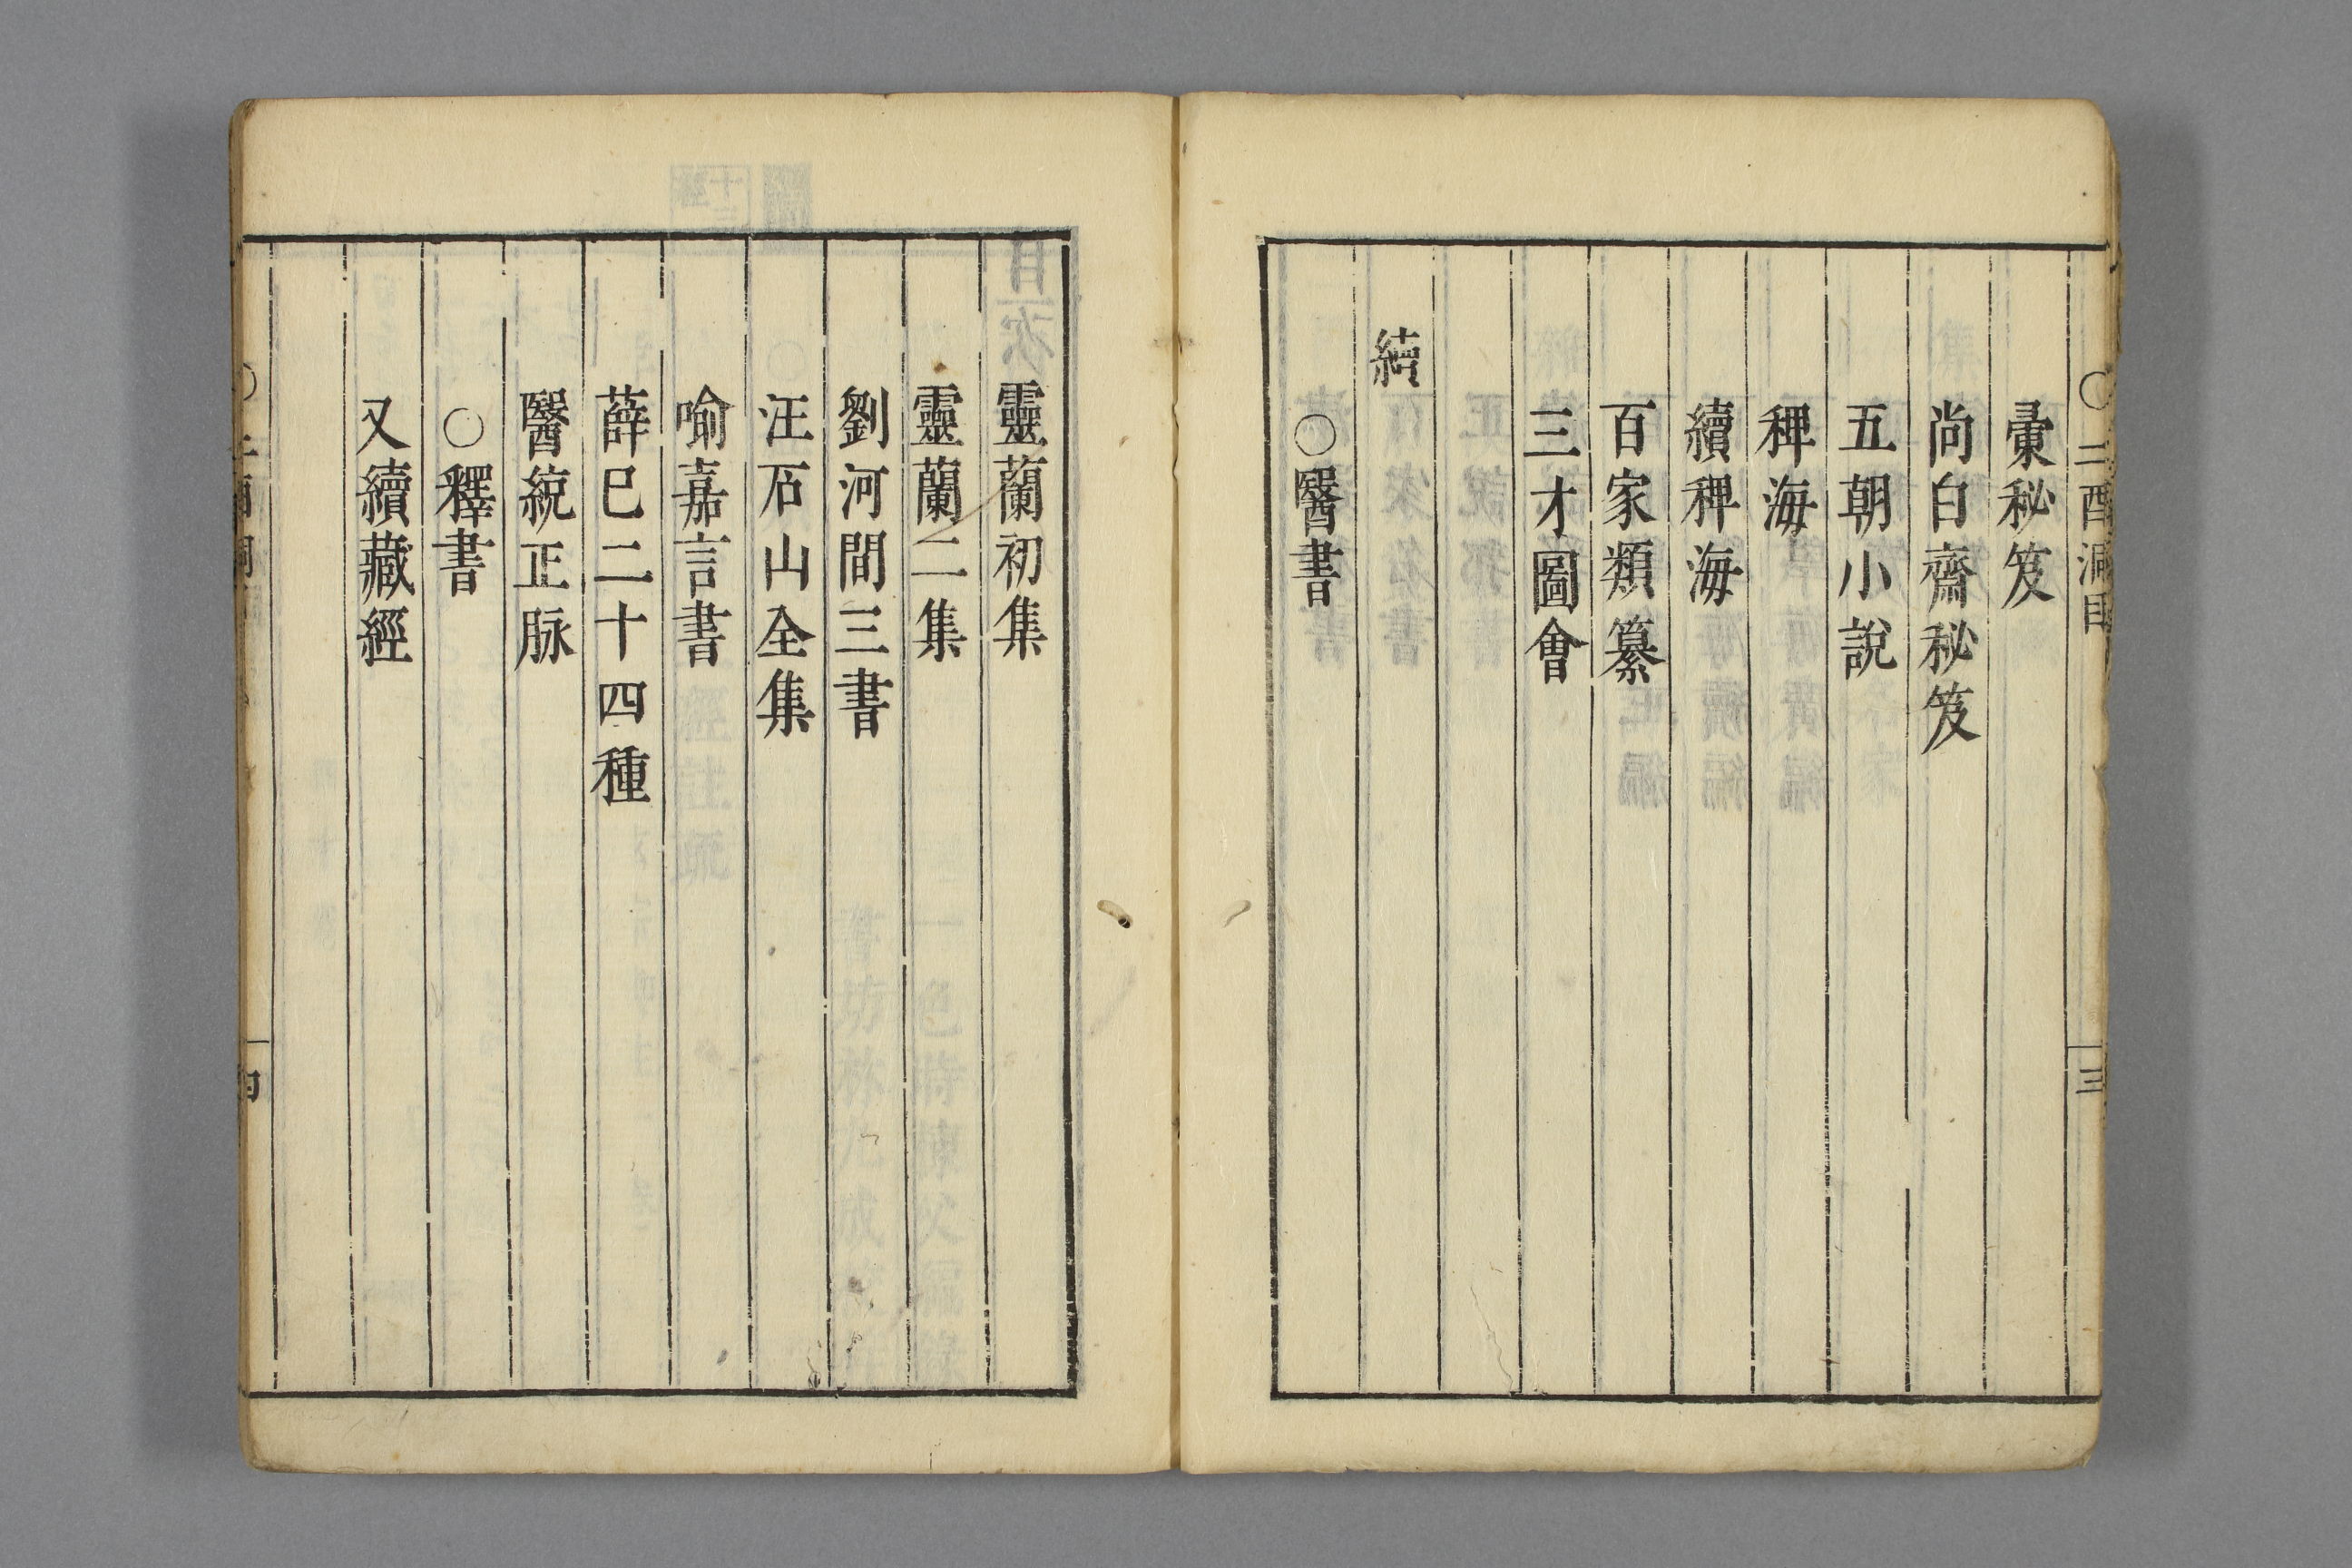 〇二酉洞目 三
彚秘笈
尚白齋秘笈
五朝小說
稗海
續稗海
百家類纂
三才圖會
續
〇醫書
靈蘭初集
靈蘭二集
劉河間三書
汪石山全集
喻嘉言書
薛巳二十四種
醫統正脉
〇釋書
又續藏經